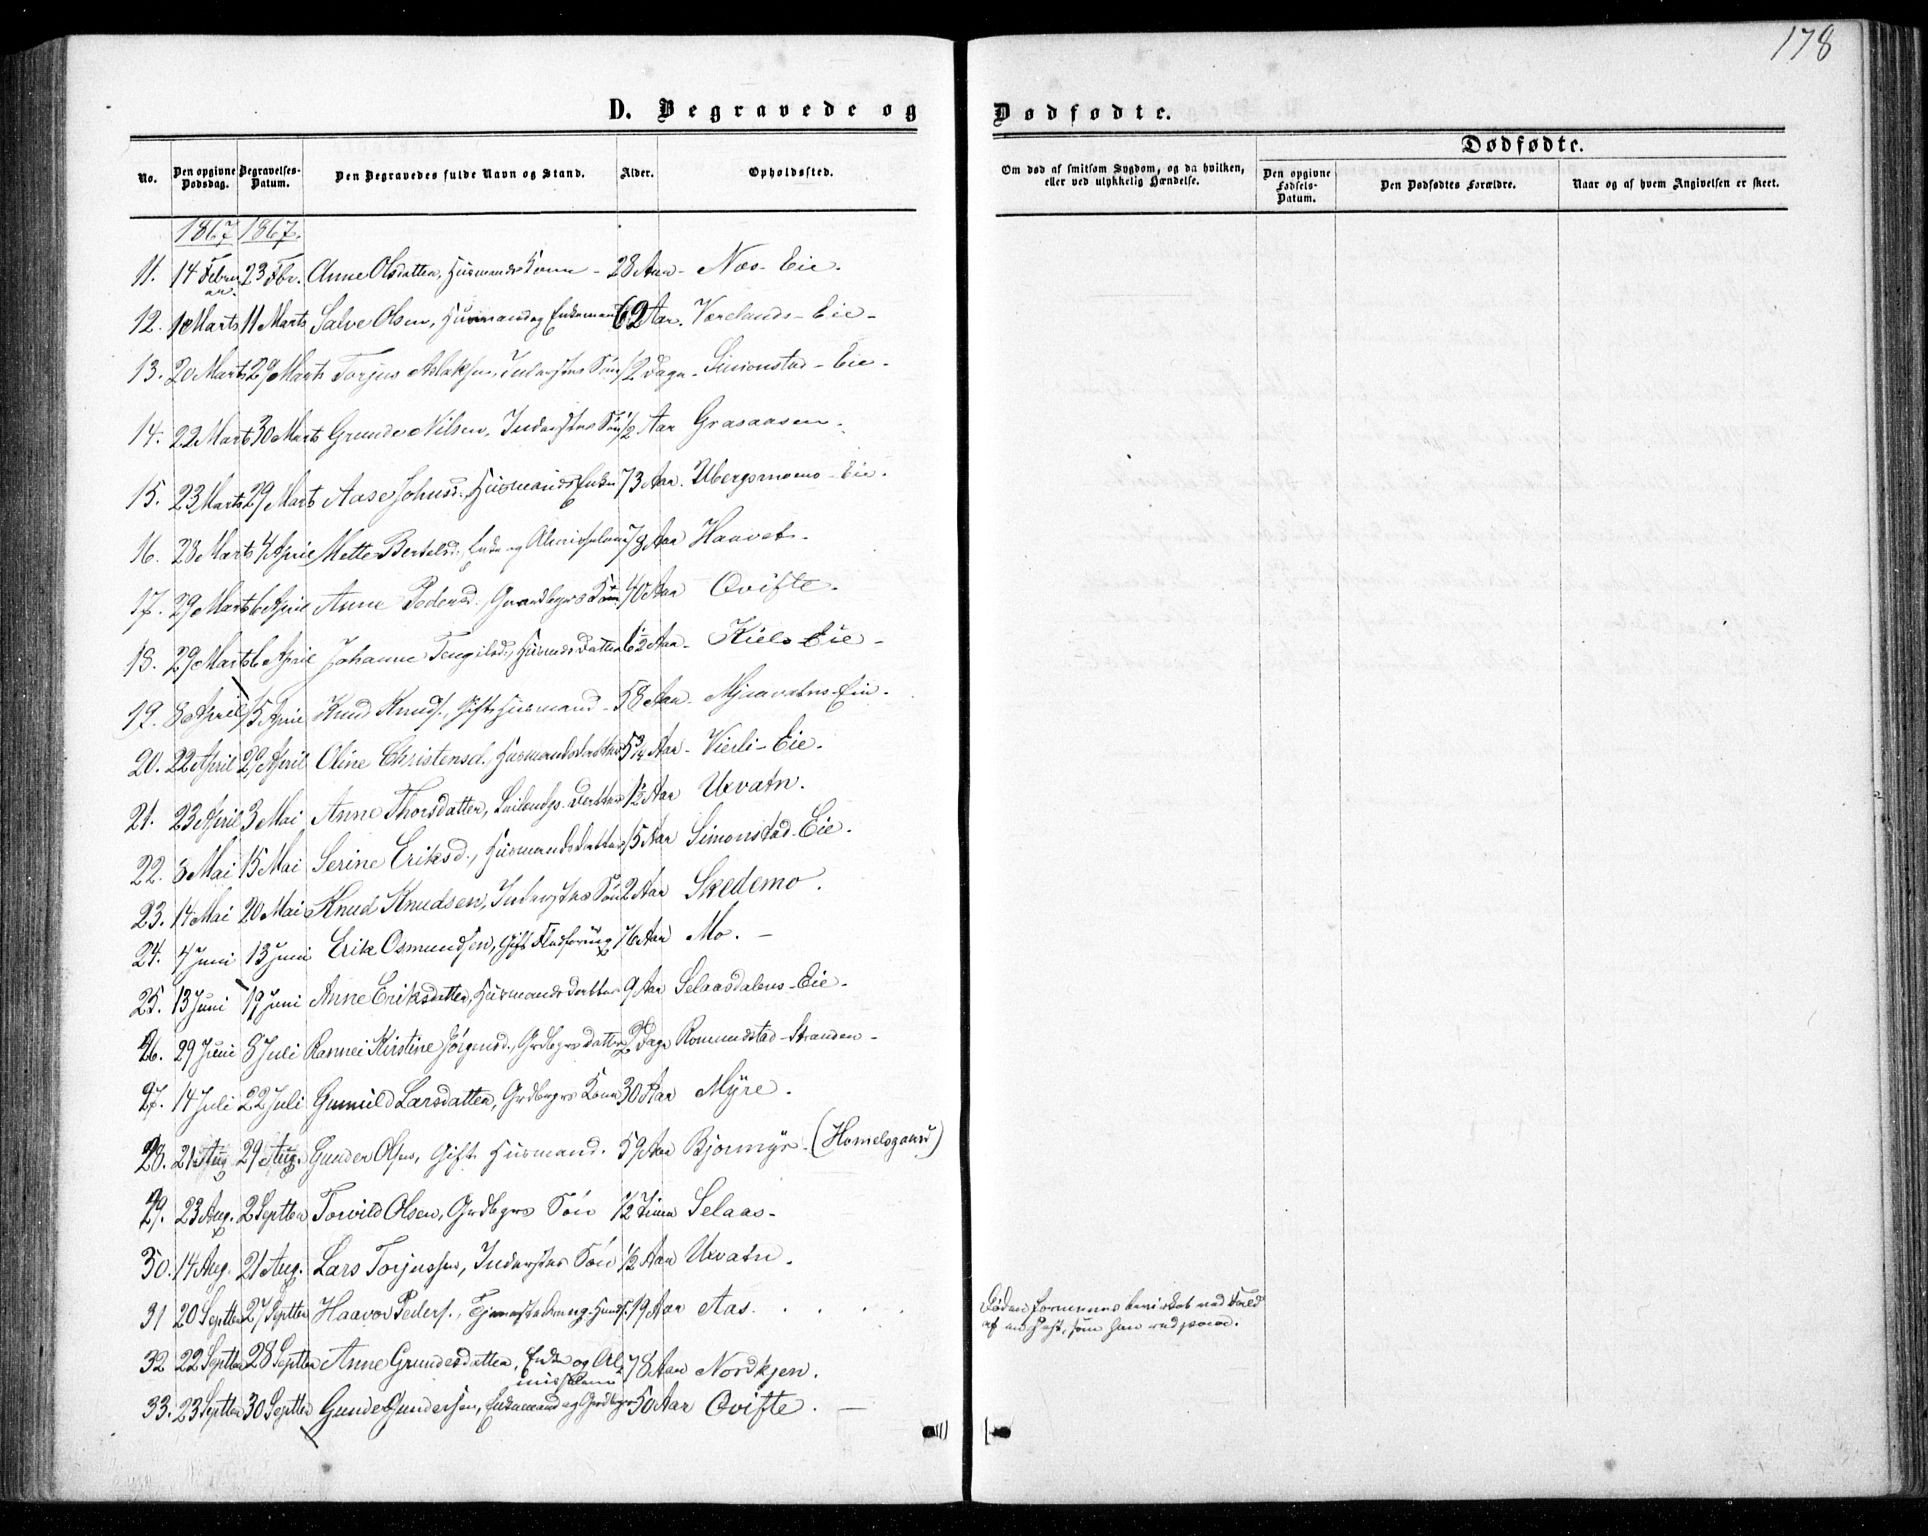 178
D. Begravede og Dødfødte.
Dødfødte.
No.
Den opgivne Dødsdag.
Begravelses-Datum.
Den Begravedes fulde Navn og Stand.
Alder.
Opholdssted.
Om død af smitsom Sygdom, og da hvilken, eller ved ulykkelig Hændelse.
Den opgivne Fødsels-Datum.
Den Dødfødtes Forældre.
Naar og af hvem Angivelsen er skeet.
1867 1867.
11. 14 Februar. 23 Fbr. Anne Olsdatter, Huusmands Kone - 28 Aar - Næs - Eie.
12. 1 Marts 11 Marts Salve Olsen, Huusmand og Enkemand 62 Aar. Værelands - Eie -
13. 20 Marts 29 Marts Torjus Aslaksen, Inderstes Søn 12 Dage - Simonstad - Eie -
14. 22 Marts 30 Marts Grunde Nilsen, Inderstes Søn 1/2 Aar Grasaasen.
15. 23 Marts 29 Marts Aase Johnsd., Huusmands Enke 73 Aar. Ubergsmoens - Eie.
16. 28 Marts 4 April Mette Bertelsd., Enke og Almisselem 78 Aar Haavet.
17. 29 Marts 6 April Anne Pedersd., Gaardbrgrs Kone 40 Aar Ovifte.
18. 29 Marts 6 April Johanne Tengilsd., Husmds Datter 6 1/2 Aar - Kiels Eie -
19. 8 April 15 April Knud Knuds., Gift Huusmand - 58 Aar - Mjaavatns - Eie.
20. 22 April 29 April Oline Christensd., Huusmandsdatter 5 3/4 Aar - Vierli - Eie.
21. 23 April 3 Mai Anne Thorsdatter, Leilendgs. Datter 1 1/2 Aar Uxvatn.
22. 8 Mai 15 Mai Serine Eriksd., Huusmandsdatter 15 Aar Simonstad - Eie.
23. 14 Mai 20 Mai Knud Knudsen, Inderstes Søn 2 Aar Skedemo.
24. 4 Juni 13 Juni Erik Osmundsen, Gift Fladføring 76 Aar Mo. -
25. 13 Juni 19 Juni Anne Eriksdatter, Huusmands Datter 9 Aar Selaasdalens - Eie -
26. 29 Juni 8 Juli Rannei Kirstine Jørgensd., Grdbgrs Datter 2 Dage Romundstad - Stranden -
27. 14 Juli 22 Juli Gunuld Larsdatter, Grdbrgrs Kone 30 Aar Myre.
28. 21 Aug 29 Aug. Gunder Olsen, Gift Huusmand. 59 Aar Bjormyr. (Homelsgaard)
29. 23 Aug. 2 Septber Torvild Olsen, Grdbgrs Søn 1/2 Time Selaas -
30. 14 Aug. 21 Aug. Lars Torjussen, Inderstes Søn 1/2 Aar Uxvatn.
31 20 Septber 27 Septber Haavor Peders., Tjenestedreng. 19 Aar Aas. . . . .
Døden foraarsaget ved Fald af en Hest, som han red paa.
32 22 Septber 28 Septber Anne Grundesdatter, Enke og Almisselem 78 Aar Nordkjen.
33. 23 Septber 30 Septber Gunder Gundersen, Enkemand og Grdbgr 50 Aar Ovifte.